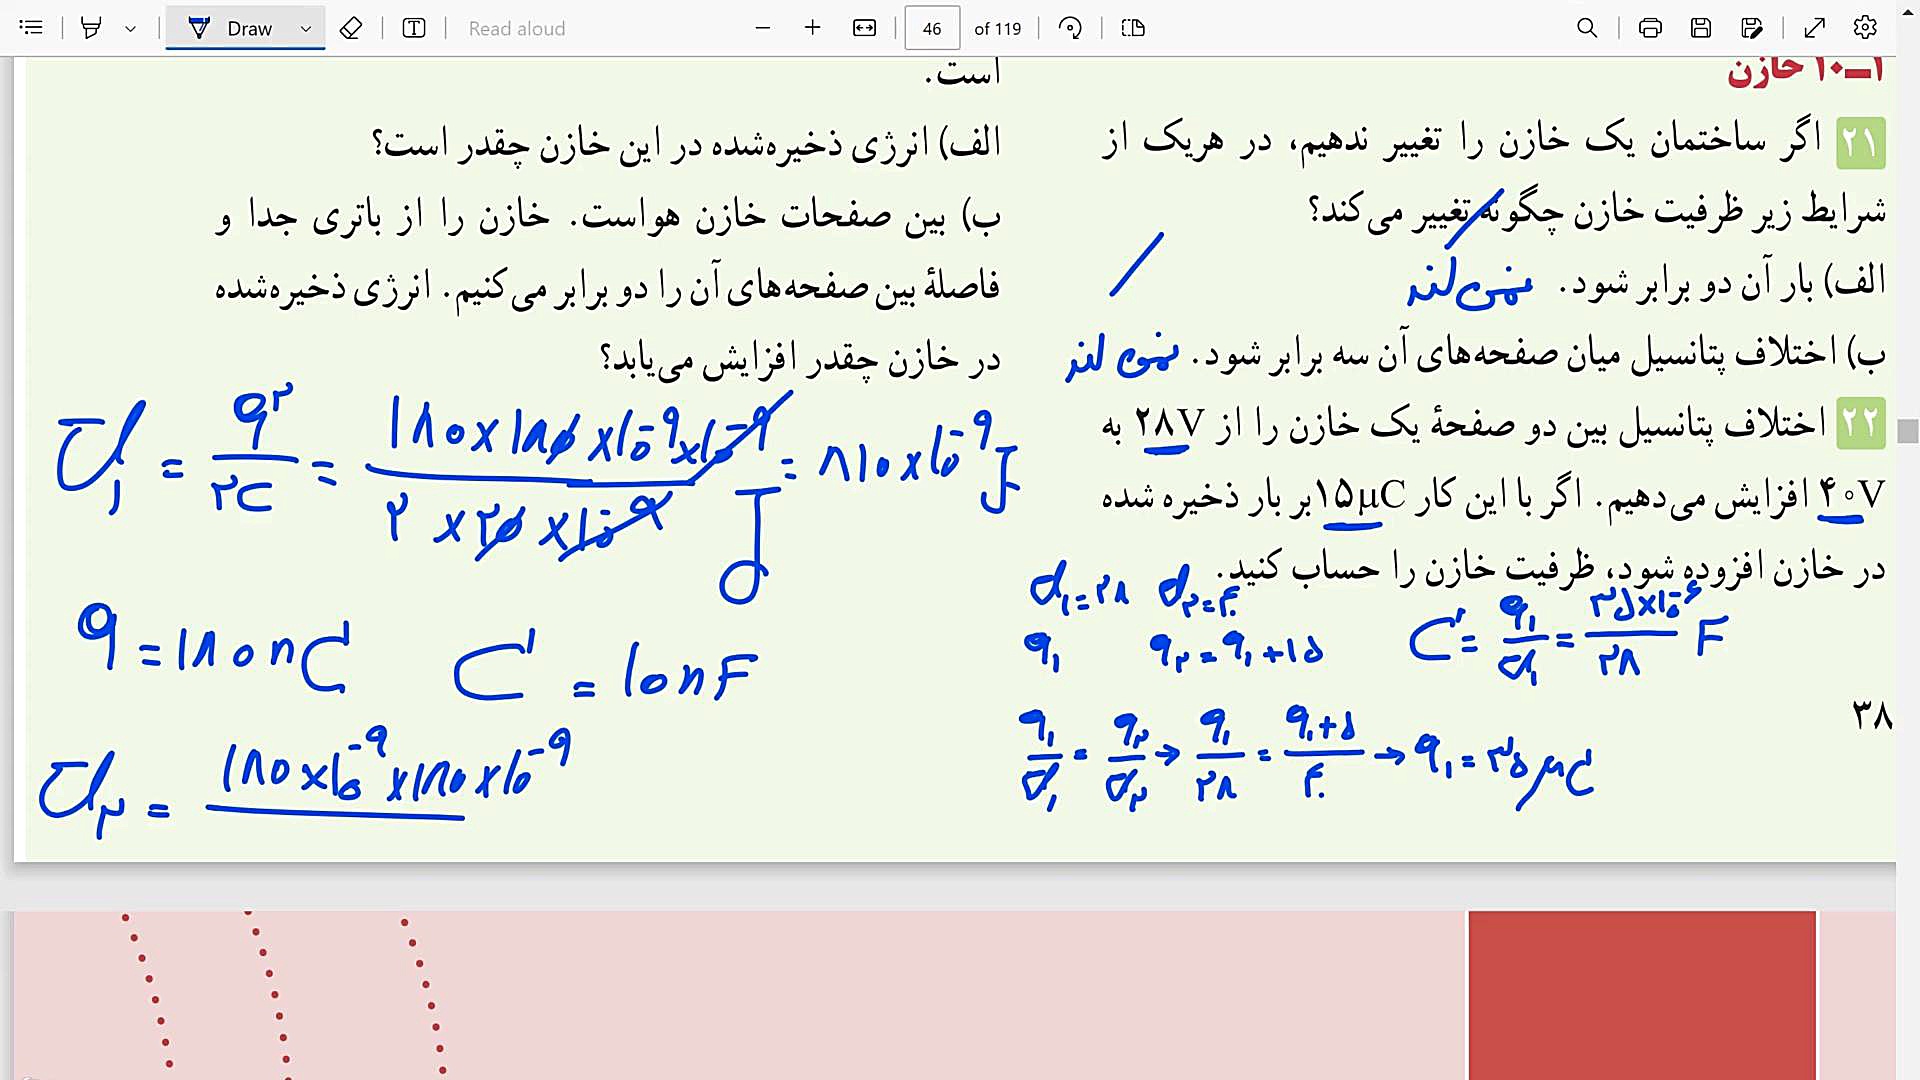 Draw
Read aloud
46 of 119
۱ــ۱۰ خازن
۲۱ اگر ساختمان یک خازن را تغییر ندهیم، در هریک از
شرایط زیر ظرفیت خازن چگونه تغییر می‌کند؟
الف) بار آن دو برابر شود. نمی‌کند
ب) اختلاف پتانسیل میان صفحه‌های آن سه برابر شود. نمی‌کند
۲۲ اختلاف پتانسیل بین دو صفحهٔ یک خازن را از ۲۸V به
۴۰V افزایش می‌دهیم. اگر با این کار ۱۵µC بر بار ذخیره شده
در خازن افزوده شود، ظرفیت خازن را حساب کنید.
V₁=۲۸ V₂=۴۰
q₁ q₂=q₁+۱۵
C = q₁/V₁ = ۳۵×۱۰⁻⁶/۲۸ F
q₁/V₁ = q₂/V₂ → q₁/۲۸ = q₁+۱۵/۴۰ → q₁ = ۳۵ µC
۳۸
است.
الف) انرژی ذخیره‌شده در این خازن چقدر است؟
ب) بین صفحات خازن هواست. خازن را از باتری جدا و
فاصلهٔ بین صفحه‌های آن را دو برابر می‌کنیم. انرژی ذخیره‌شده
در خازن چقدر افزایش می‌یابد؟
U₁ = q²/۲C = ۱۸۰×۱۸۰×۱۰⁻⁹×۱۰⁻⁹/۲×۲۰×۱۰⁻⁹ = ۸۱۰×۱۰⁻⁹ J
q = ۱۸۰nC C = ۱۰nF
U₂ = ۱۸۰×۱۰⁻⁹×۱۸۰×۱۰⁻⁹